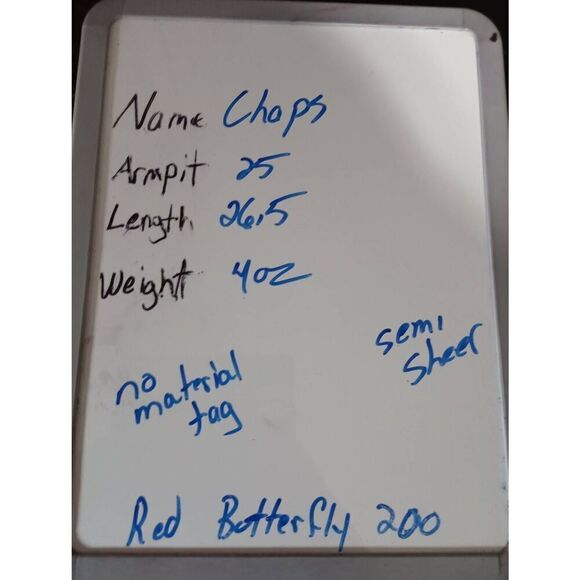 Name Chaps
Armpit 25
Length 26.5
Weight 4oz
semi
sheer
no
material
tag
Red Butterfly 200